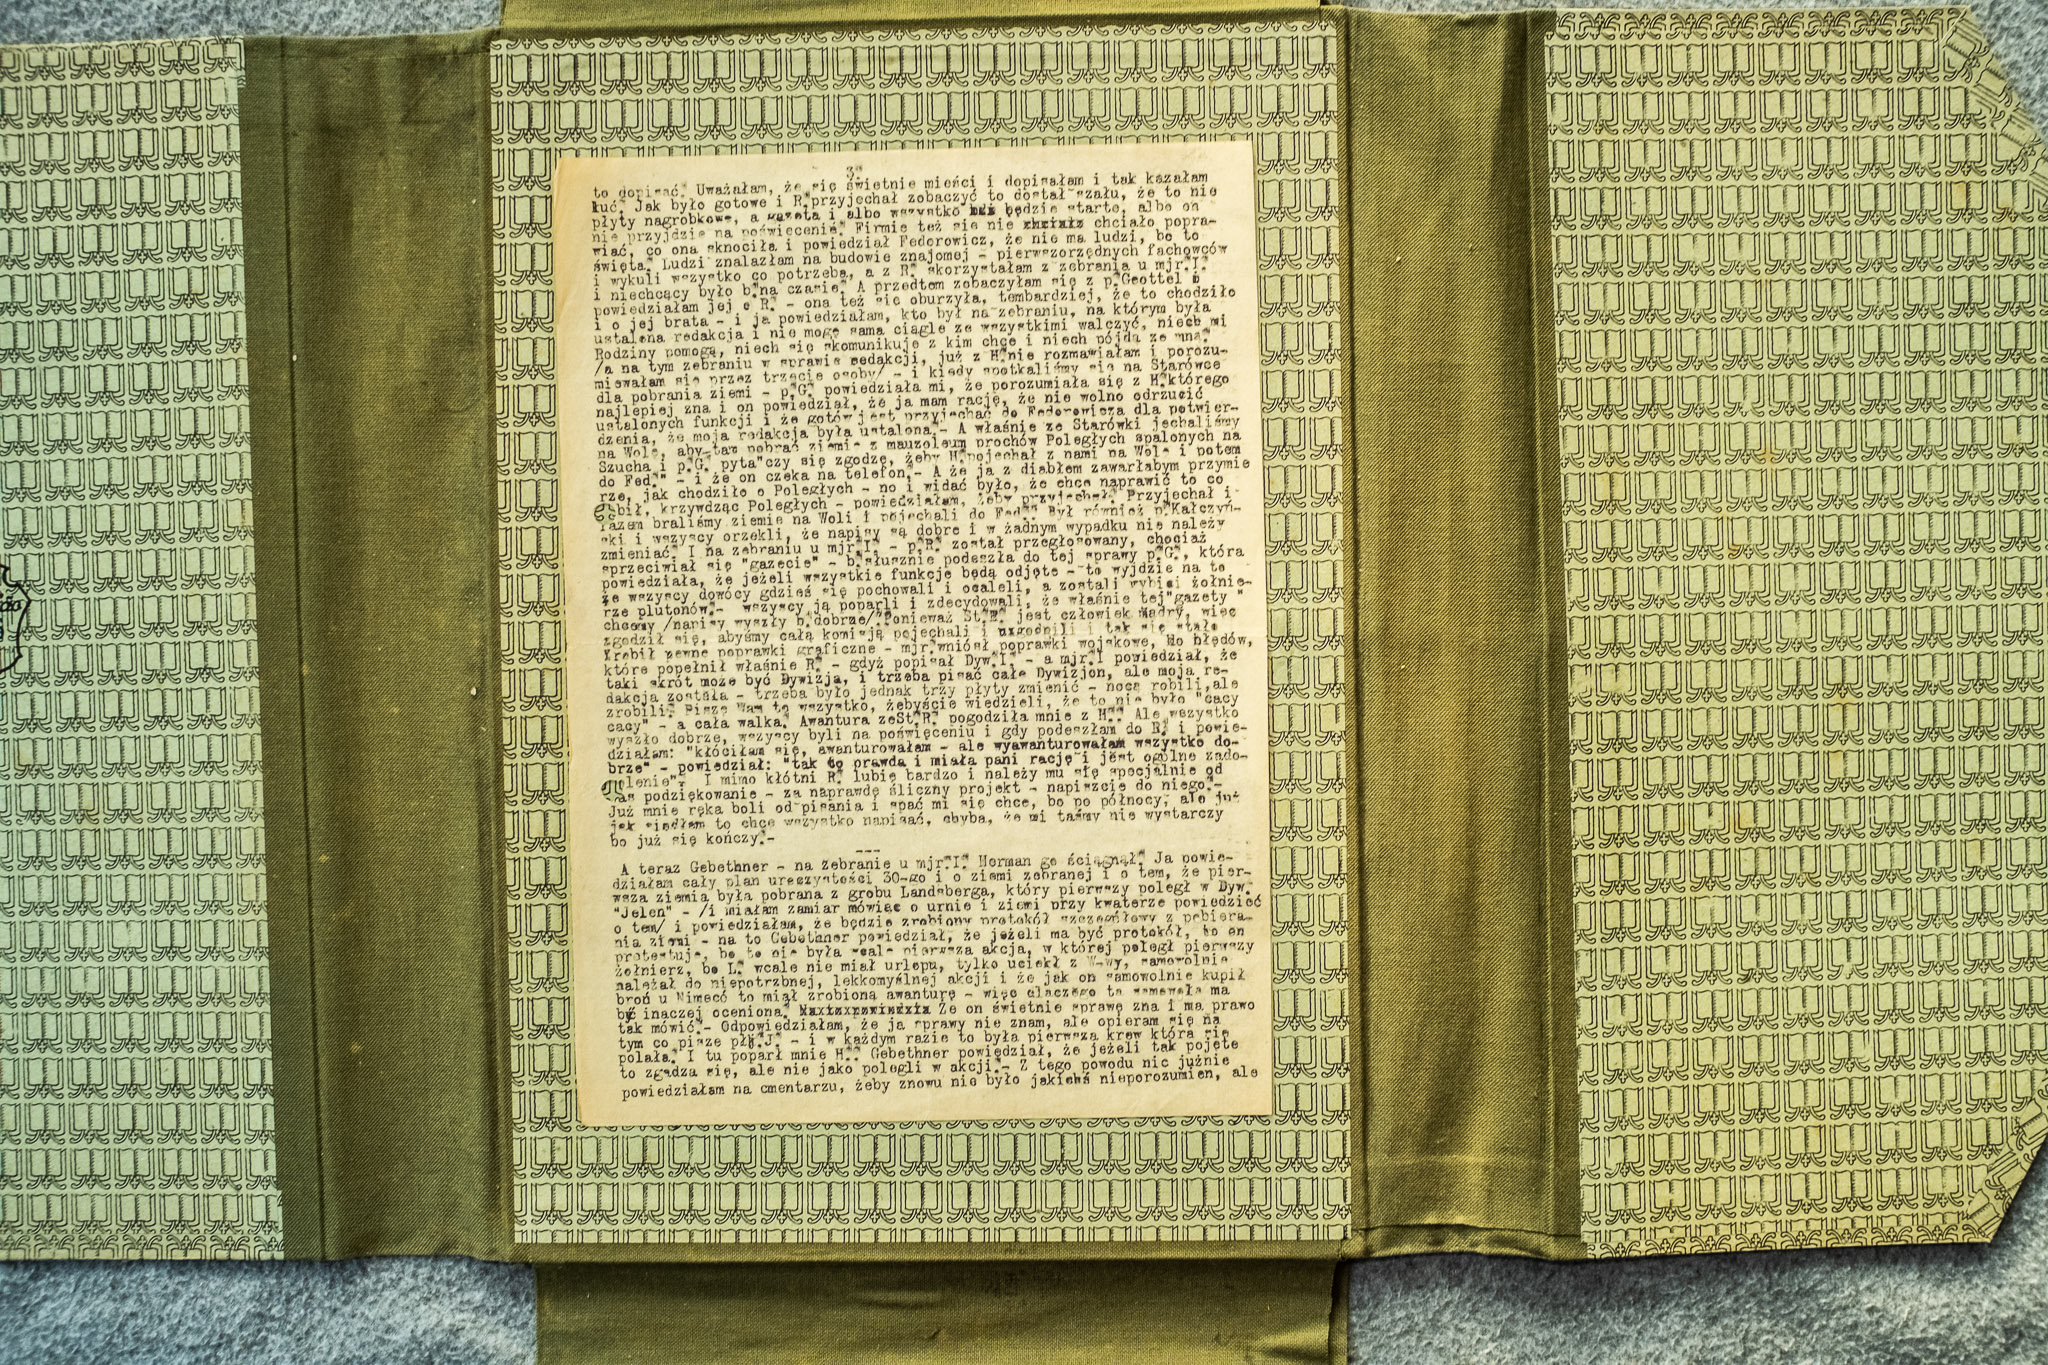 3.
to dopisać. Uważałam, że się świetnie mieści i dopisałam i tak kazałam
kuć. Jak było gotowe i R.przyjechał zobaczyć to dostał szału, że to nie
płyty nagrobkowe, a gazeta i albo wszystko będzie starte, albo on
nie przyjdzie na poświęcenie. Firmie też się nie chciało popra-
wiać, co ona sknociła i powiedział Federowicz, że nie ma ludzi, bo to
święta. Ludzi znalazłam na budowie znajomej - pierwszorzędnych fachowców
i wykuli wszystko co potrzeba, a z R. skorzystałam z zebrania u mjr.I.
i niechcący było b.na czasie. A przedtem zobaczyłam się z p.Geottel
powiedziałam jej o R. - ona też się oburzyła, tembardziej, że to chodziło
i o jej brata - i ja powiedziałam, kto był na zebraniu, na którym była
ustalona redakcja i nie mogę sama ciągle ze wszystkimi walczyć, niech mi
Rodziny pomogą, niech się skomunikuje z kim chce i niech pójdą ze mną.
/a na tym zebraniu w sprawie redakcji, już z H.nie rozmawiałam i porozu-
miewałam się przez trzecie osoby/ - i kiedy spotkaliśmy się na Starówce
dla pobrania ziemi - p.G. powiedziała mi, że porozumiała się z H.którego
najlepiej zna i on powiedział, że ja mam rację, że nie wolno odrzucić
ustalonych funkcji i że gotów jest przyjechać do Federowicza dla potwier-
dzenia, że moja redakcja była ustalona.- A właśnie ze Starówki jechaliśmy
na Wolę, aby tam pobrać ziemi z mauzoleum prochów Poległych spalonych na
Szucha i p.G. pyta"czy się zgodzę, żeby H.pojechał z nami na Wolę i potem
do Fed." - i że on czeka na telefon.- A że ja z diabłem zawarłabym przymie
rze, jak chodziło o Poległych - no i widać było, że chce naprawić to co
bił, krzywdząc Poległych - powiedziałam, żeby przyjechał. Przyjechał i
razem braliśmy ziemię na Woli i pojechali do Fed.. Był również p.Kałczyń-
ski i wszyscy orzekli, że napisy są dobre i w żadnym wypadku nie należy
zmieniać. I na zebraniu u mjr.I. - p.R. został przegłosowany, chociaż
sprzeciwiał się "gazecie" - b.słusznie podeszła do tej sprawy p.G., która
powiedziała, że jeżeli wszystkie funkcje będą odjęte - to wyjdzie na to
że wszyscy dowócy gdzieś się pochowali i ocaleli, a zostali wybici żołnie-
rze plutonów.- wszyscy ją poparli i zdecydowali, że właśnie tej"gazety "
chcemy /napisy wyszły b.dobrze/.Ponieważ St.R. jest człowiek Mądry, więc
zgodził się, abyśmy całą komisją pojechali i uzgodnili i tak się stało
Zrobił pewne poprawki graficzne - mjr.wniósł poprawki wojskowe, No błędów,
które popełnił właśnie R. - gdyż popisał Dyw.I. - a mjr.I powiedział, że
taki skrót może być Dywizja, i trzeba pisać całe Dywizjon, ale moja re-
dakcja została - trzeba było jednak trzy płyty zmienić - nocą robili,ale
zrobili. Piszę Wam to wszystko, żebyście wiedzieli, że to nie było "cacy
cacy" - a cała walka. Awantura zeSt.R. pogodziła mnie z H.. Ale wszystko
wyszło dobrze, wszyscy byli na poświęceniu i gdy podeszłam do R. i powie-
działam: "kłóciłam się, awanturowałam - ale wyawanturowałam wszystko do-
brze" - powiedział: "tak to prawda i miała pani rację i jest ogólne zado-
olenie". I mimo kłótni R. lubię bardzo i należy mu się specjalnie od
as podziękowanie - za naprawdę śliczny projekt - napiszcie do niego.-
Już mnie ręka boli od pisania i spać mi się chce, bo po północy, ale już
jak siadłam to chcę wszystko napisać, chyba, że mi taśmy nie wystarczy
bo już się kończy.-
---
A teraz Gebethner - na zebranie u mjr.I. Herman go ściągnął. Ja powie-
działam cały plan uroczystości 30-go i o ziemi zebranej i o tem, że pier-
wsza ziemia była pobrana z grobu Landsberga, który pierwszy poległ w Dyw.
"Jeleń" - /i miałam zamiar mówiąc o urnie i ziemi przy kwaterze powiedzieć
o tem/ i powiedziałam, że będzie zrobiony protokół szczegółowy z pobiera-
nia ziemi - na to Gebethner powiedział, że jeżeli ma być protokół, to on
protestuje, bo to nie była wcale pierwsza akcja, w której poległ pierwszy
żołnierz, bo L. wcale nie miał urlopu, tylko uciekł z W-wy, samowolnie
należał do niepotrzbnej, lekkomyślnej akcji i że jak on samowolnie kupił
broń u Nimecó to miał zrobioną awanturę - więc dlaczego ta samowola ma
być inaczej oceniona. Że on świetnie sprawę zna i ma prawo
tak mówić.- Odpowiedziałam, że ja sprawy nie znam, ale opieram się na
tym co pisze płk.J. - i w każdym razie to była pierwsza krew która się
polała. I tu poparł mnie H.. Gebethner powiedział, że jeżeli tak pojęte
to zgadza się, ale nie jako polegli w akcji.- Z tego powodu nic jużnie
powiedziałam na cmentarzu, żeby znowu nie było jakichś nieporozumien, ale